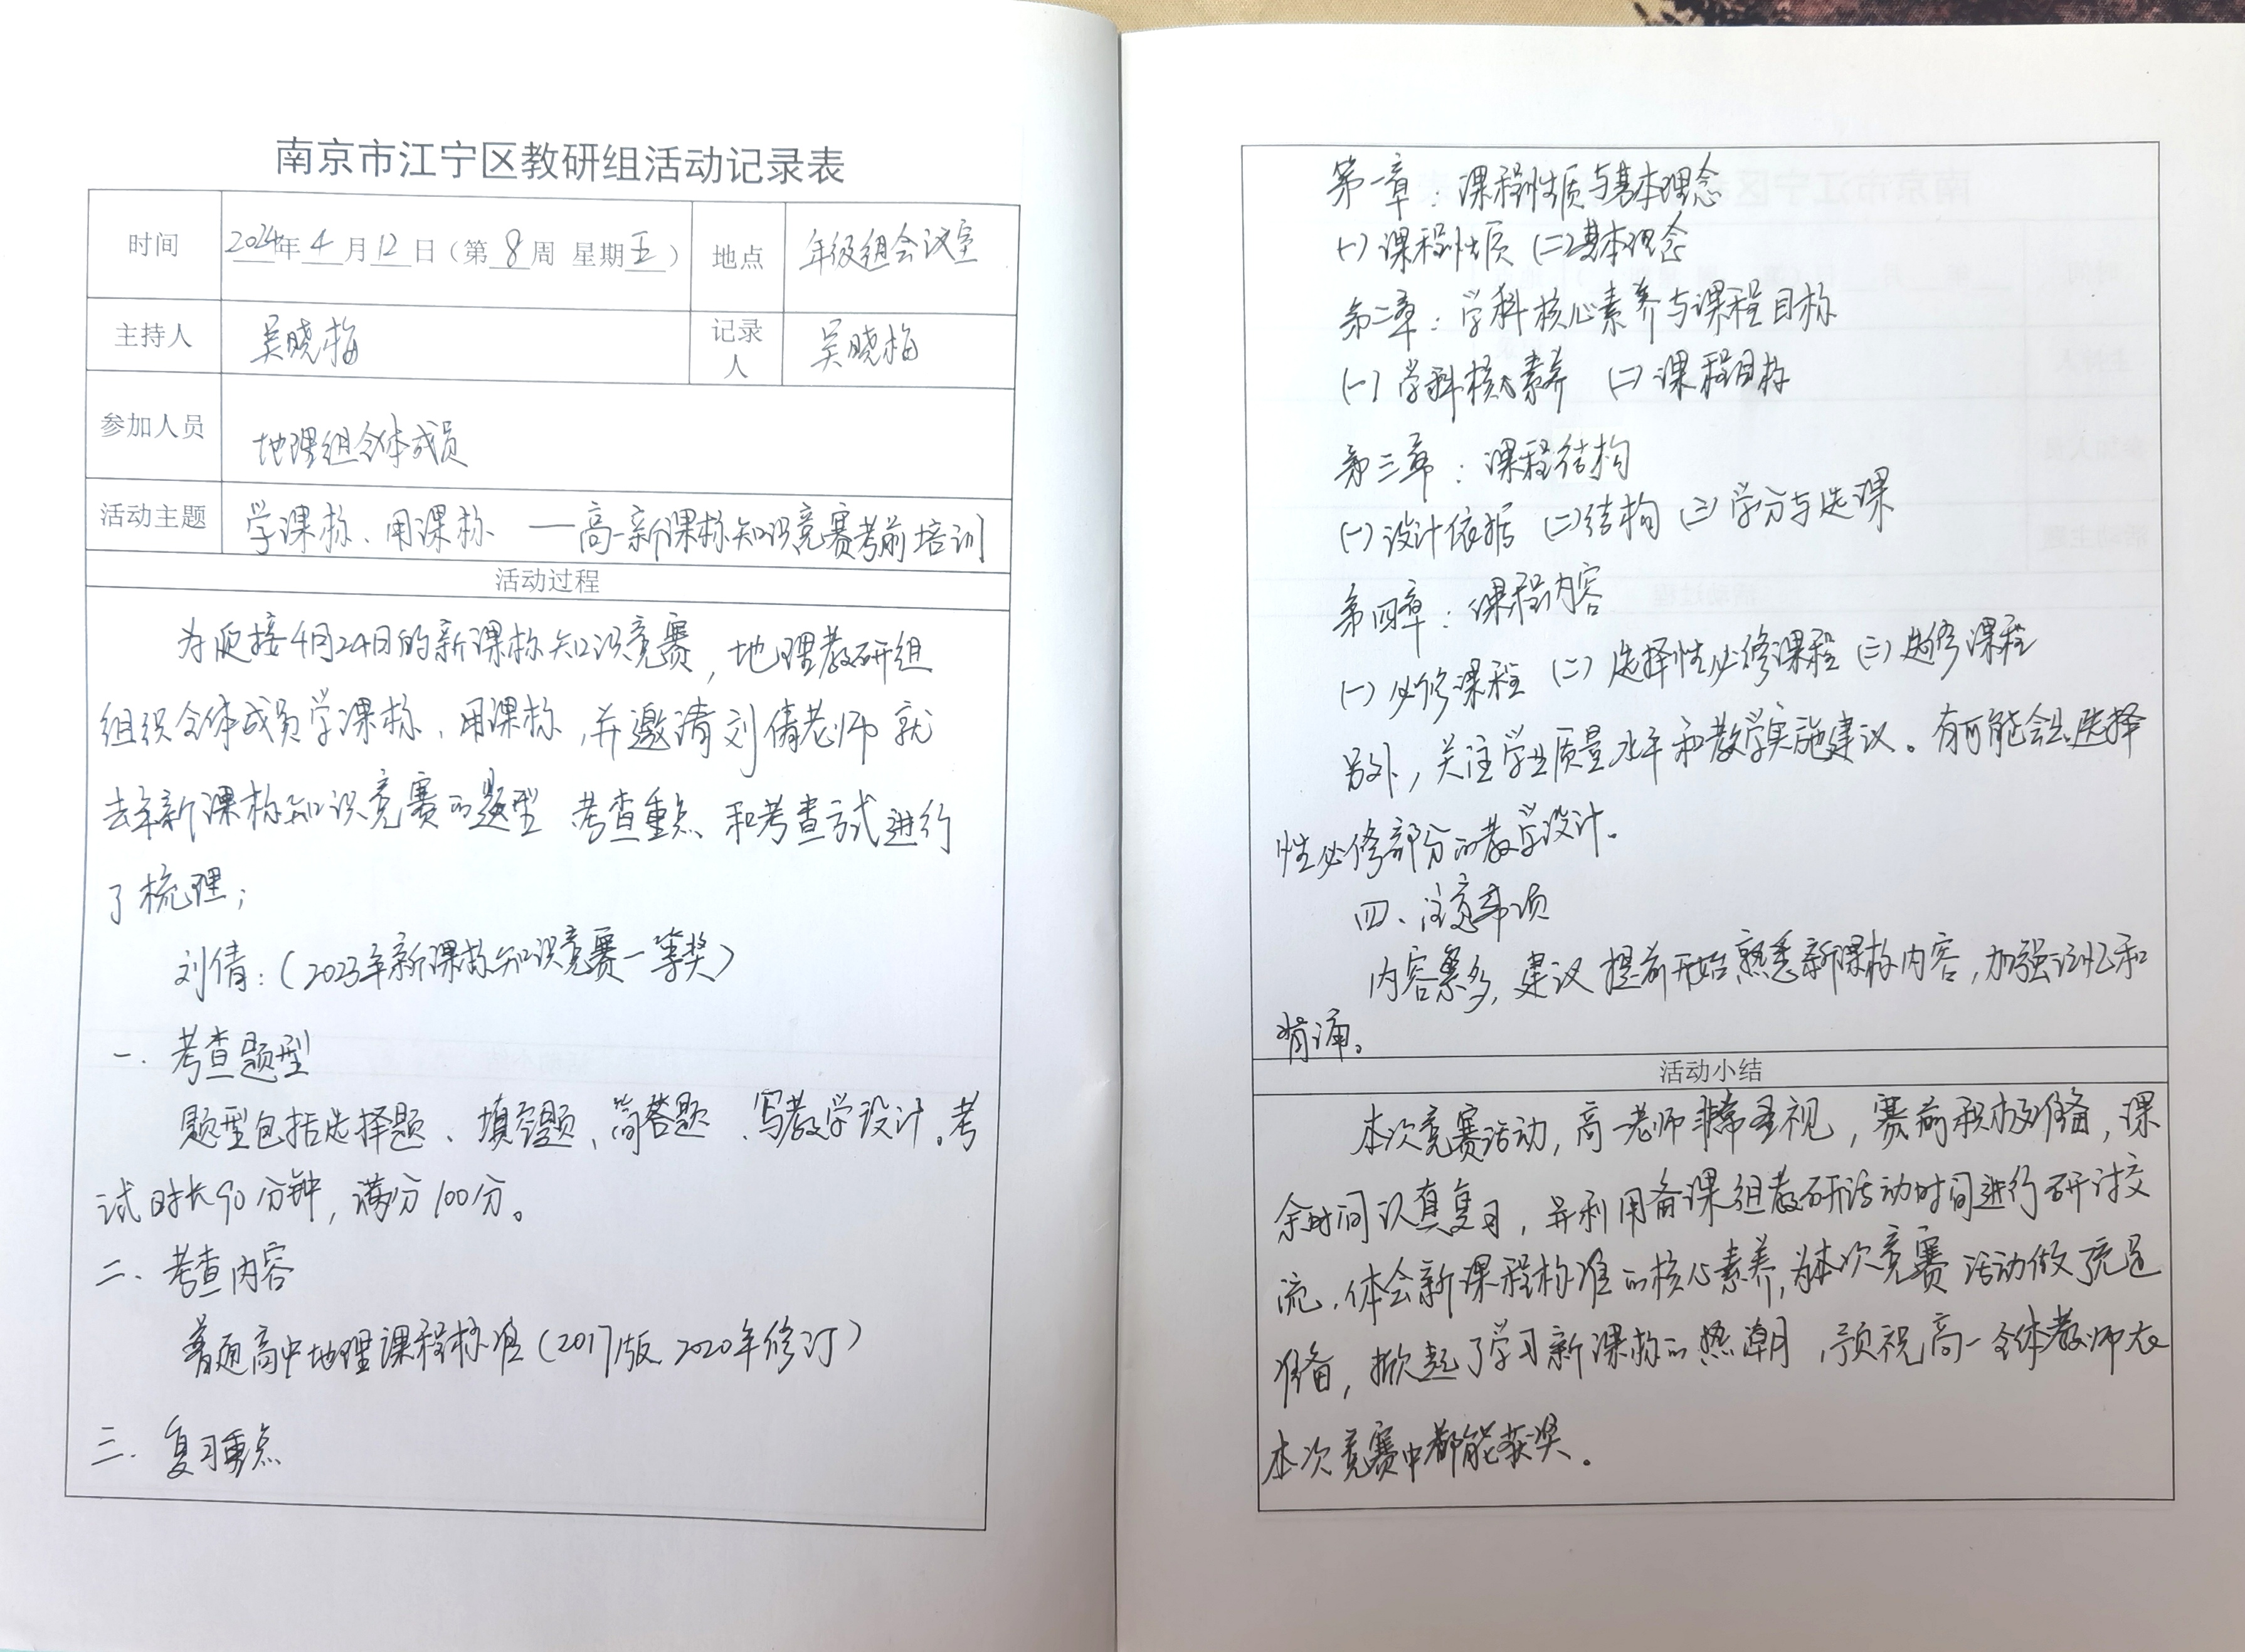 南京市江宁区教研组活动记录表
时间 2024年4月12日（第8周 星期五） 地点 年级组会议室
主持人 吴晓梅 记录人 吴晓梅
参加人员 地理组全体成员
活动主题 学课标、用课标 ——高一新课标知识竞赛考前培训
活动过程
为迎接4月24日的新课标知识竞赛，地理教研组
组织全体成员学课标、用课标，并邀请刘倩老师就
去年新课标知识竞赛的题型 考查重点、和考查方式进行
了梳理；
刘倩：（2023年新课标知识竞赛一等奖）
一、考查题型
题型包括选择题、填空题、简答题、写教学设计。考
试时长90分钟，满分100分。
二、考查内容
普通高中地理课程标准（2017版 2020年修订）
三、复习重点
第一章：课程性质与基本理念
（一）课程性质（二）基本理念
第二章：学科核心素养与课程目标
（一）学科核心素养 （二）课程目标
第三章：课程结构
（一）设计依据（二）结构（三）学分与选课
第四章：课程内容
（一）必修课程（二）选择性必修课程（三）选修课程
另外，关注学业质量水平和教学实施建议。有可能会出选择
性必修部分的教学设计。
四、注意事项
内容繁多，建议提前开始熟悉新课标内容，加强记忆和
背诵。
活动小结
本次竞赛活动，高一老师非常重视，赛前积极准备，课
余时间认真复习，并利用备课组教研活动时间进行研讨交
流，体会新课程标准的核心素养，为本次竞赛活动做了充足
准备，掀起了学习新课标的热潮，预祝高一全体教师在
本次竞赛中都能获奖。